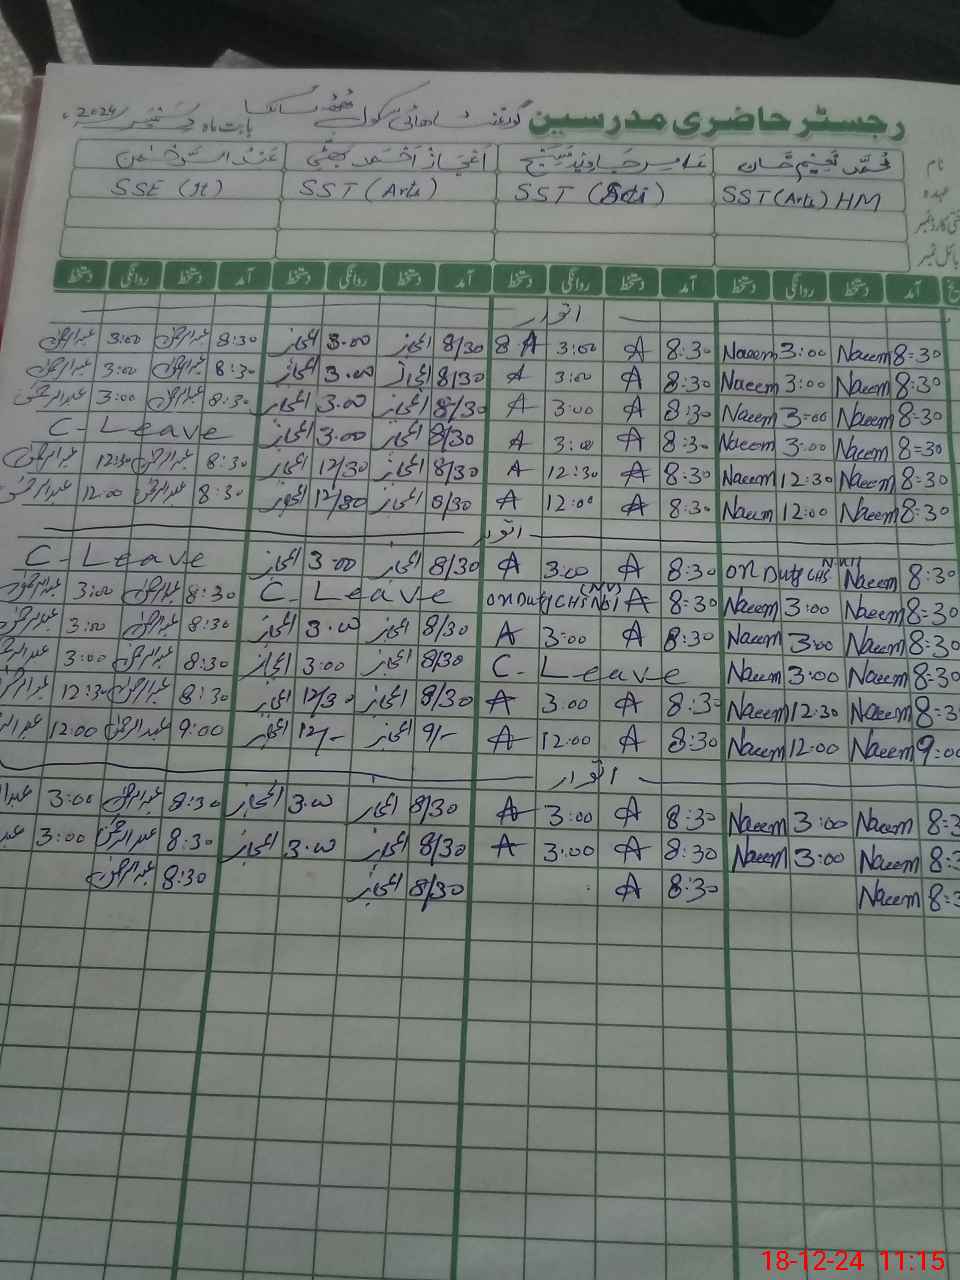 رجسٹر حاضری مدرسین گورنمنٹ ہائی سکول بابت ماہ دسمبر 2024ء
نام محمد نعیم خان اعجاز احمد بھٹی عبدالرحمن
عہدہ SST (Arts) HM SST (Sci) SST (Arts) SSE (
آمد دستخط روانگی دستخط آمد دستخط روانگی دستخط آمد دستخط روانگی دستخط آمد دستخط روانگی دستخط
اتوار
8=30 Naeem 3:00 Naeem 8:30 A 3:00 A 8/30 اعجاز 3.00 اعجاز 8:30 عبدالرحمن 3:00 عبدالرحمن
8=30 Naeem 3:00 Naeem 8:30 A 3:00 A 8/30 اعجاز 3.00 اعجاز 8:30 عبدالرحمن 3:00 عبدالرحمن
8=30 Naeem 3=00 Naeem 8:30 A 3:00 A 8/30 اعجاز 3.00 اعجاز 8:30 عبدالرحمن 3:00 عبدالرحمن
8=30 Naeem 3:00 Naeem 8:30 A 3:00 A 8/30 اعجاز 3.00 اعجاز C-Leave
8=30 Naeem 12:30 Naeem 8:30 A 12:30 A 8/30 اعجاز 12/30 اعجاز 8:30 عبدالرحمن 12:30 عبدالرحمن
8=30 Naeem 12:00 Naeem 8:30 A 12:00 A 8/30 اعجاز اعجاز 8:30 عبدالرحمن 12:00 عبدالرحمن
اتوار
8=30 Naeem ON Duty CHS 8:30 A 3:00 A 8/30 اعجاز 3.00 اعجاز C-Leave
8=30 Naeem 3:00 Naeem 8=30 A ON Duty CHS C-Leave 8:30 عبدالرحمن 3:00 عبدالرحمن
8=30 Naeem 3:00 Naeem 8:30 A 3:00 A 8/30 اعجاز 3.00 اعجاز 8:30 عبدالرحمن 3:00 عبدالرحمن
8=30 Naeem 3:00 Naeem C-Leave 8/30 اعجاز 3:00 اعجاز 8:30 عبدالرحمن 3:00
8=3 Naeem 12:30 Naeem 8:30 A 3:00 A 8/30 اعجاز 12/30 اعجاز 8:30 عبدالرحمن 12:30
9=00 Naeem 12:00 Naeem 8:30 A 12:00 A 9/- اعجاز 12/- اعجاز 9:00 عبدالرحمن 12:00
اتوار
8=3 Naeem 3:00 Naeem 8:30 A 3:00 A 8/30 اعجاز 3.00 اعجاز 8:30 عبدالرحمن 3:00
8=3 Naeem 3:00 Naeem 8:30 A 3:00 A 8/30 اعجاز 3.00 اعجاز 8:30 عبدالرحمن 3:00
8=3 Naeem 8:30 A 8/30 اعجاز 8:30 عبدالرحمن
18-12-24 11:15